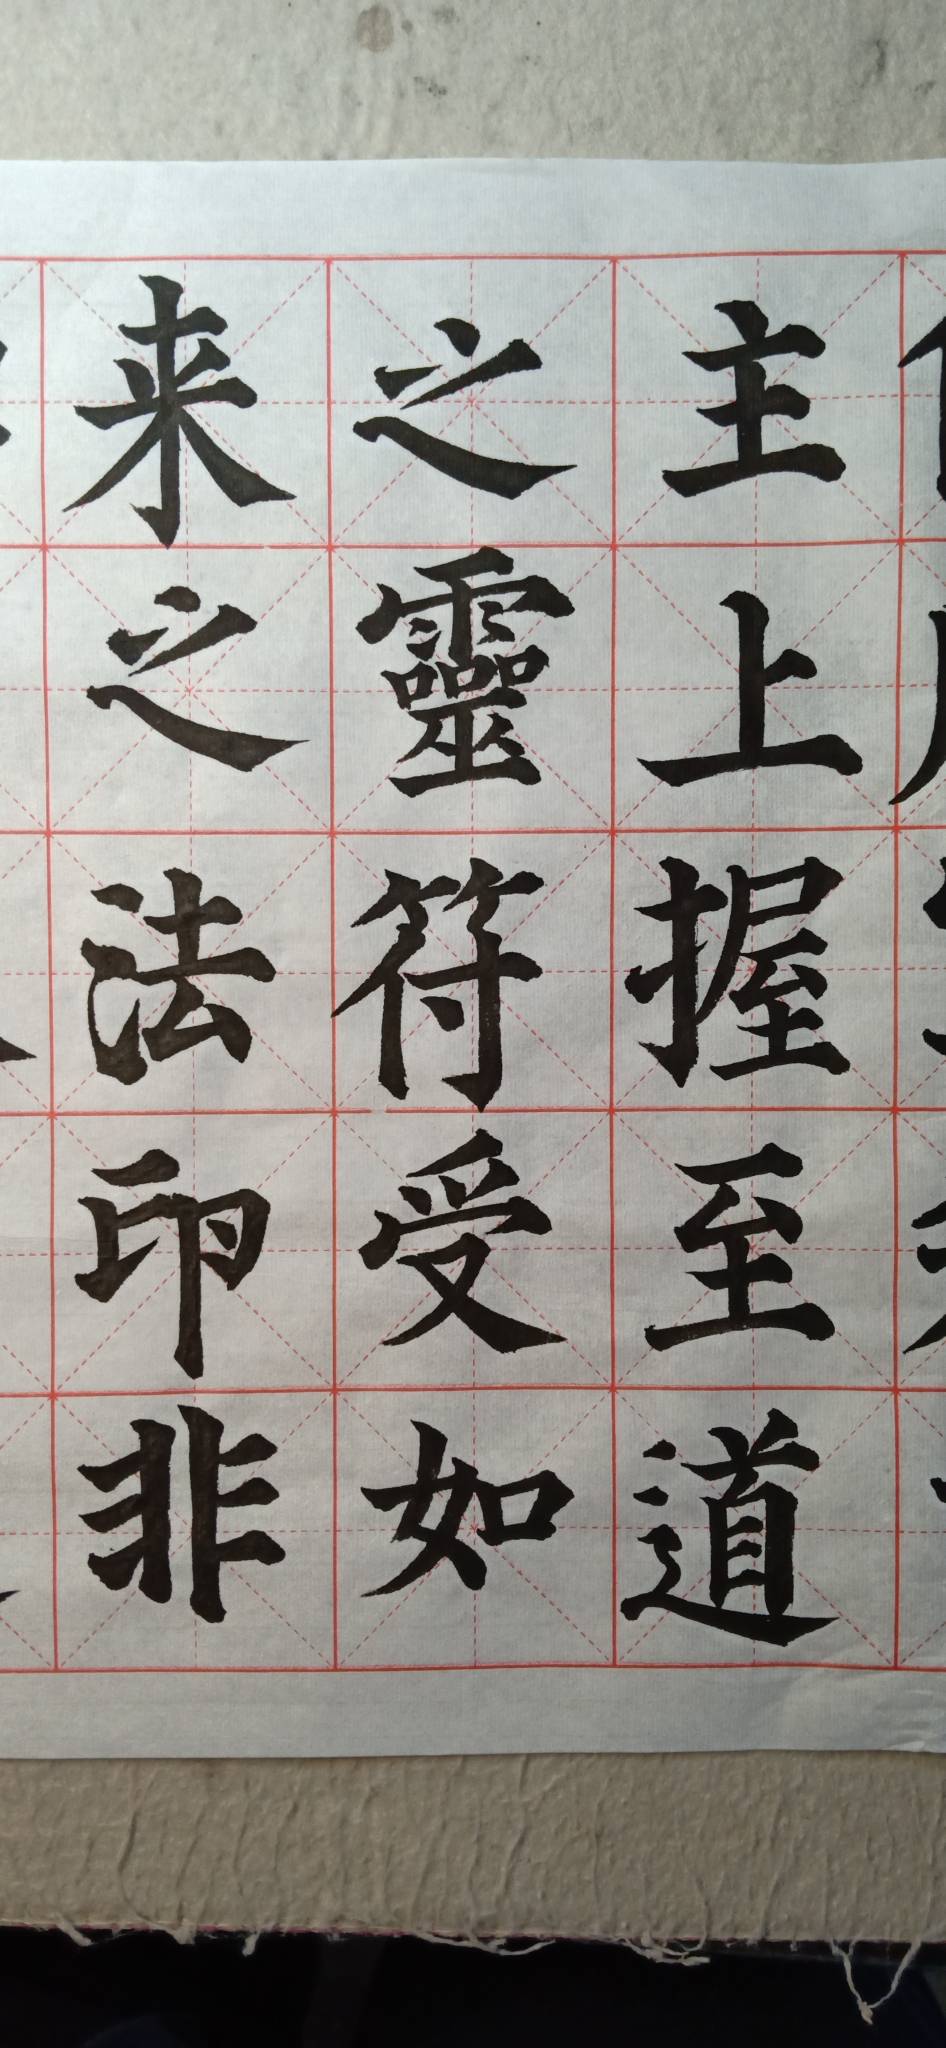 主上握至道
之靈符受如
来之法印非